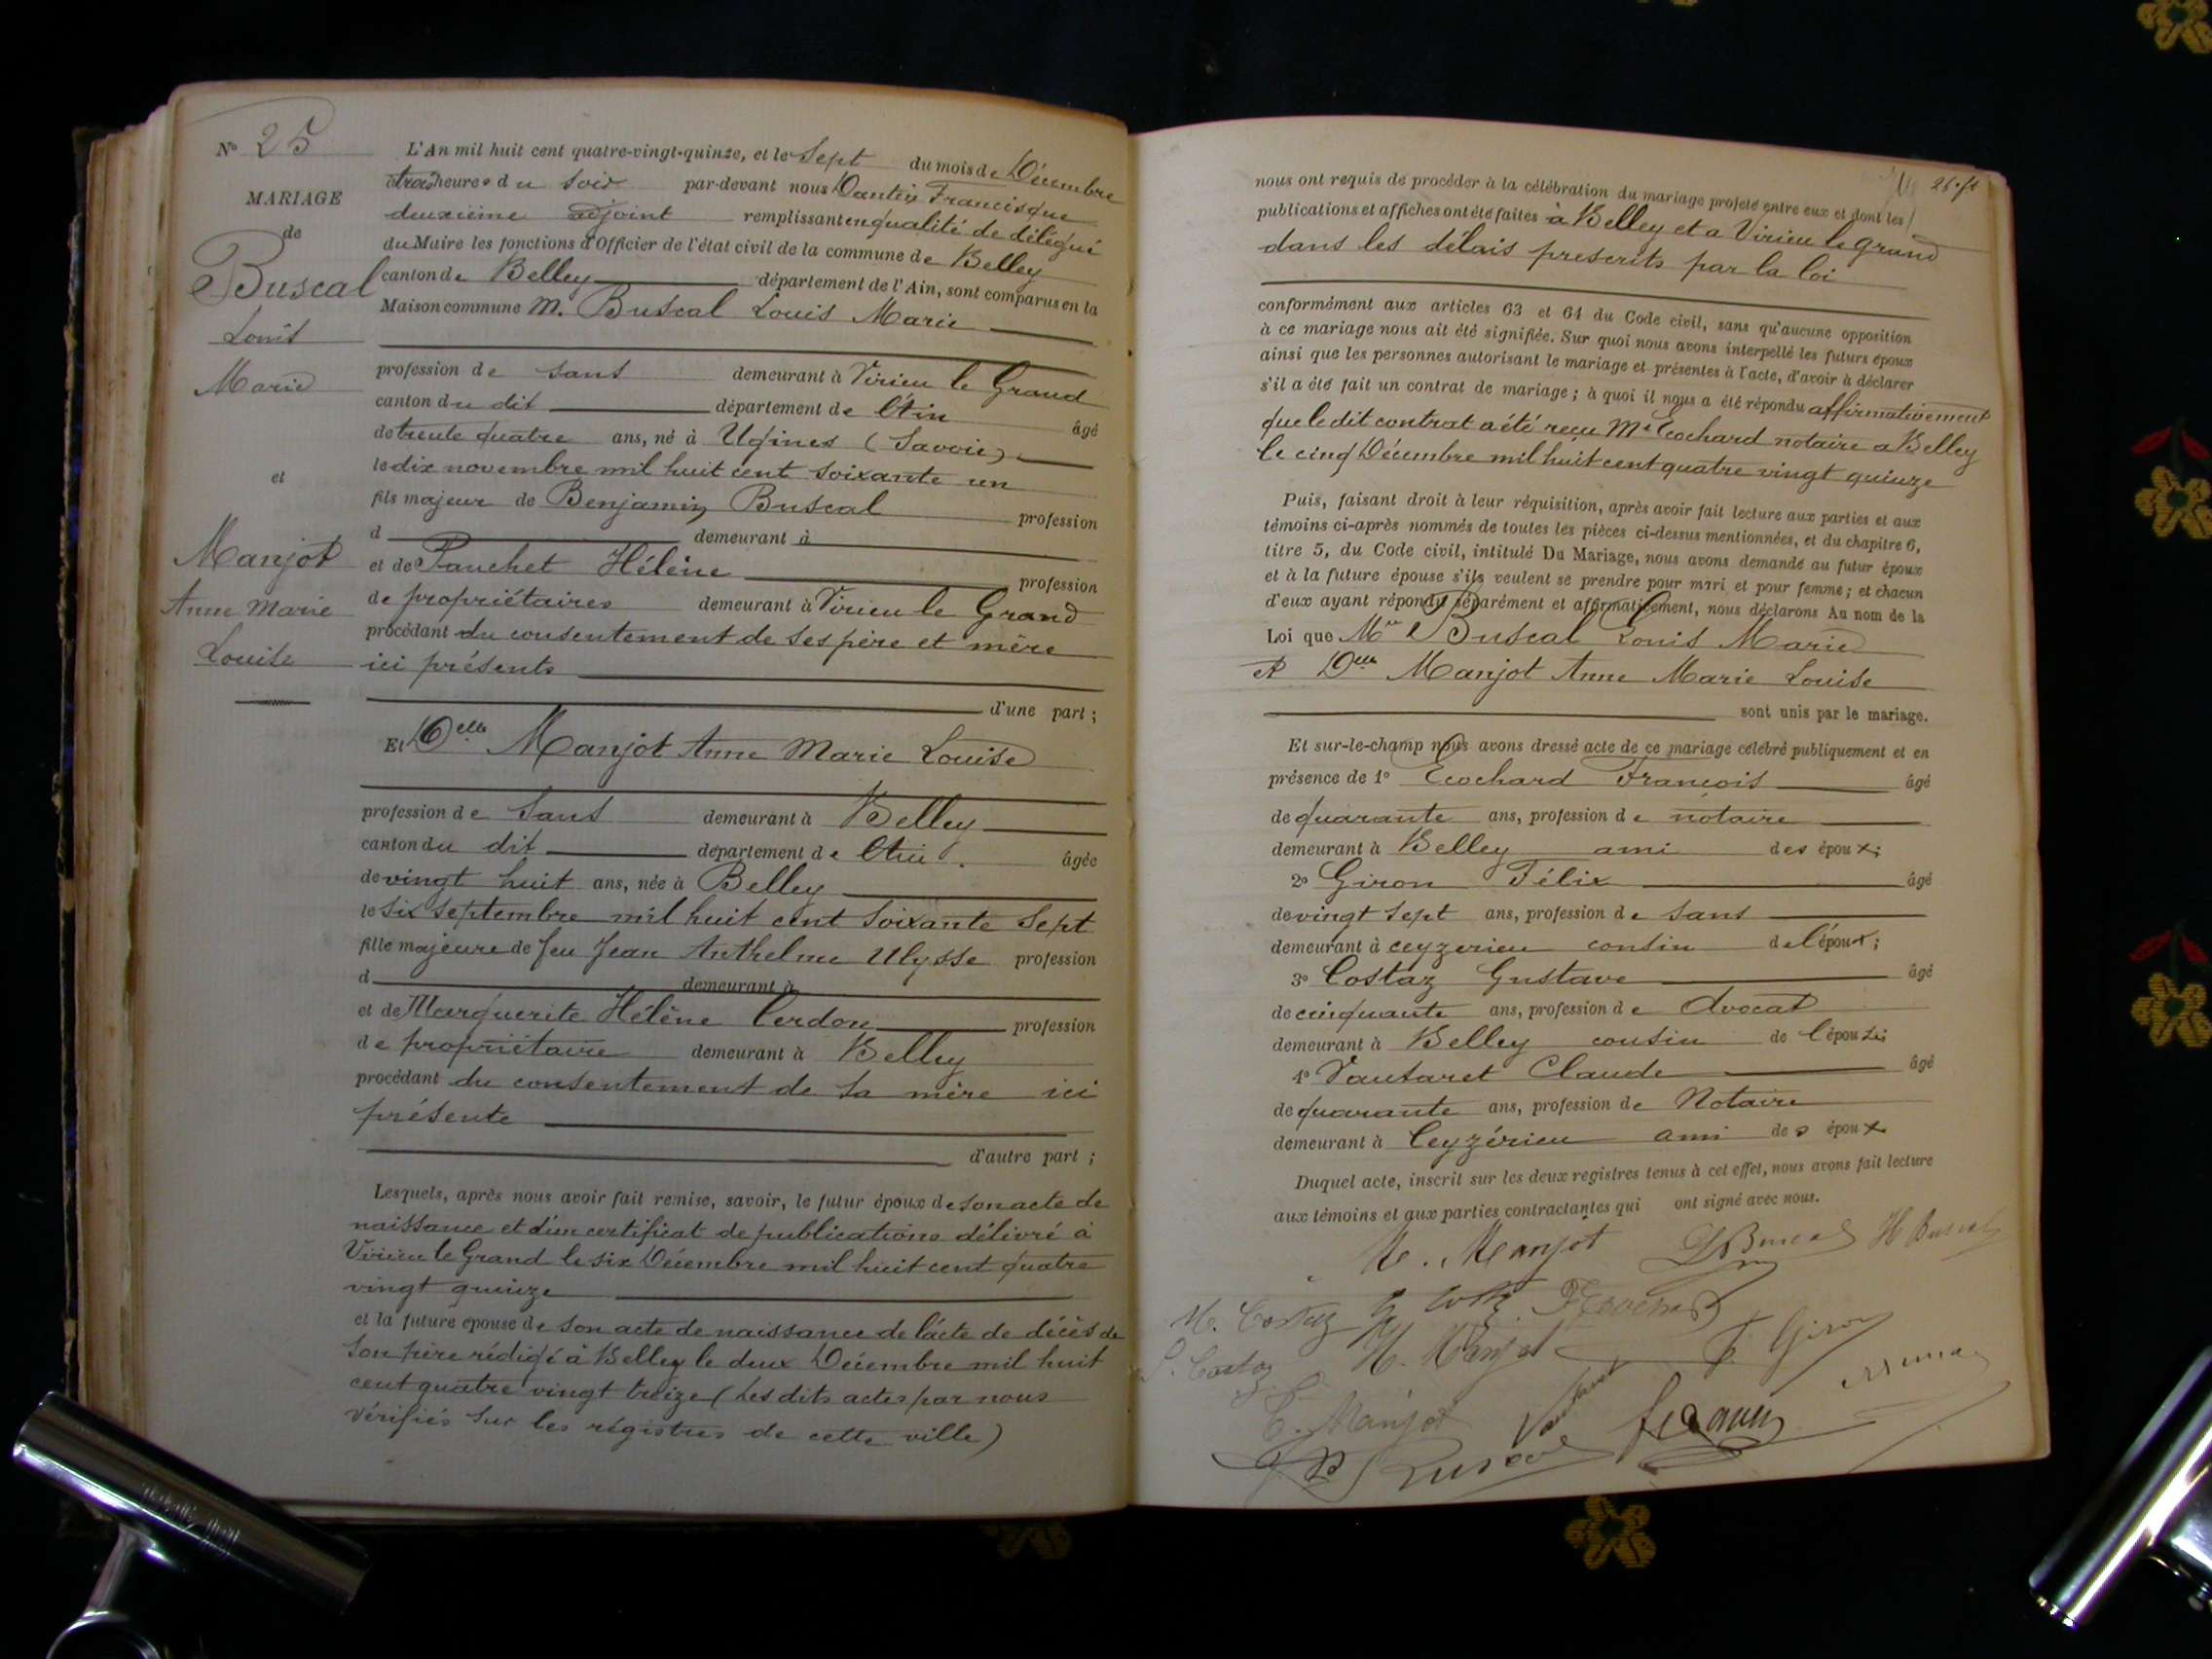 N° 25
MARIAGE
de
Buscal
Louis
Marie
et
Manjot
Anne Marie
Louise
L'An mil huit cent quatre-vingt-quinze, et le Sept du mois de Décembre
à trois heures du soir par-devant nous Dantin Francisque
deuxième adjoint remplissant en qualité de délégué
du Maire les fonctions d'Officier de l'état civil de la commune de Belley
canton de Belley département de l'Ain, sont comparus en la
Maison commune M. Buscal Louis Marie
profession de sans demeurant à Virieu le Grand
canton du dit département de l'Ain âgé
de trente quatre ans, né à Ugines (Savoie)
le dix novembre mil huit cent soixante un
fils majeur de Benjamin Buscal profession
d demeurant à
et de Pauchet Hélène profession
de propriétaires demeurant à Virieu le Grand
procédant du consentement de ses père et mère
ici présents
d'une part ;
Et Delle Manjot Anne Marie Louise
profession de Sans demeurant à Belley
canton du dit département de l'Ain. âgée
de vingt huit ans, née à Belley
le six Septembre mil huit cent soixante Sept
fille majeure de feu Jean Anthelme Ulysse profession
d demeurant à
et de Marguerite Hélène Cerdon profession
de propriétaire demeurant à Belley
procédant du consentement de sa mère ici
présente
d'autre part ;
Lesquels, après nous avoir fait remise, savoir, le futur époux de son acte de
naissance et d'un certificat de publications délivré à
Virieu le Grand le six Décembre mil huit cent quatre
vingt quinze
et la future épouse de son acte de naissance de l'acte de décès de
son père rédigé à Belley le deux Décembre mil huit
cent quatre vingt treize (Les dits actes par nous
vérifiés sur les régistres de cette ville)
26. ft
nous ont requis de procéder à la célébration du mariage projeté entre eux et dont les
publications et affiches ont été faites à Belley et a Virieu le grand
dans les délais prescrits par la loi
conformément aux articles 63 et 64 du Code civil, sans qu'aucune opposition
à ce mariage nous ait été signifiée. Sur quoi nous avons interpellé les futurs époux
ainsi que les personnes autorisant le mariage et présentes à l'acte, d'avoir à déclarer
s'il a été fait un contrat de mariage ; à quoi il nous a été répondu affirmativement
que le dit contrat a été reçu Me Ecochard notaire a Belley
le cinq Décembre mil huit cent quatre vingt quinze
Puis, faisant droit à leur réquisition, après avoir fait lecture aux parties et aux
témoins ci-après nommés de toutes les pièces ci-dessus mentionnées, et du chapitre 6,
titre 5, du Code civil, intitulé Du Mariage, nous avons demandé au futur époux
et à la future épouse s'ils veulent se prendre pour mari et pour femme ; et chacun
d'eux ayant répondu séparément et affirmativement, nous déclarons Au nom de la
Loi que Mr Buscal Louis Marie
et Delle Manjot Anne Marie Louise
sont unis par le mariage.
Et sur-le-champ nous avons dressé acte de ce mariage célébré publiquement et en
présence de 1° Ecochard François âgé
de quarante ans, profession de notaire
demeurant à Belley ami des époux ;
2° Giron Félix âgé
de vingt Sept ans, profession de sans
demeurant à ceyzerieu cousin de l'époux ;
3° Costaz Gustave âgé
de cinquante ans, profession de Avocat
demeurant à Belley cousin de l'épouse
4° Vautaret Claude âgé
de quarante ans, profession de Notaire
demeurant à Ceyzérieu ami des époux
Duquel acte, inscrit sur les deux registres tenus à cet effet, nous avons fait lecture
aux témoins et aux parties contractantes qui ont signé avec nous.
M. Manjot H Buscal
M. Costaz
S. Costaz H. Manjot F. Giron
C. Manjot